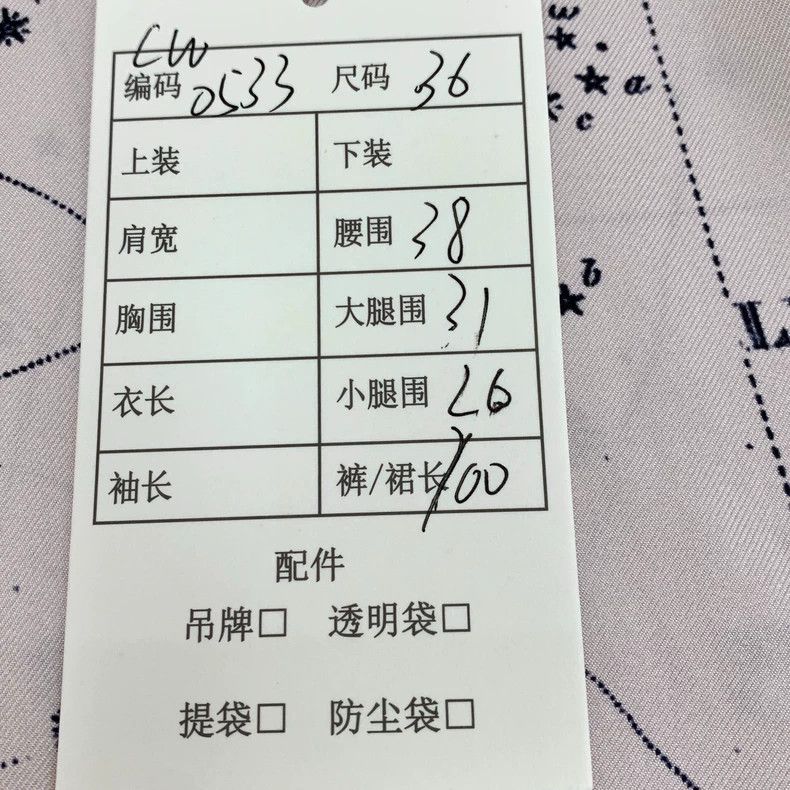 CW
编码 0533 尺码 36
上装 下装
肩宽 腰围 38
胸围 大腿围 31
衣长 小腿围 26
袖长 裤/裙长 100
配件
吊牌□ 透明袋□
提袋□ 防尘袋□
a
c
b